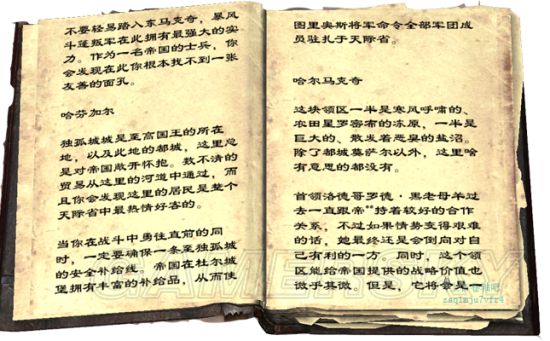 不要轻易踏入东马克奇，暴风
斗篷叛军在此拥有最强大的实
力。作为一名帝国的士兵，你
会发现在此你根本找不到一张
友善的面孔。
哈芬加尔
独孤城城是至高国王的所在
地，以及此地的都城，这里总
是对帝国敞开怀抱。数不清的
贸易从这里的河道中通过，而
且你会发现这里的居民是整个
天际省中最热情好客的。
当你在战斗中勇往直前的同
时，一定要确保一条至独孤城
的安全补给线。帝国在杜尔城
堡拥有丰富的补给品，从而使
图里奥斯将军命令全部军团成
员驻扎于天际省。
哈尔马克奇
这块领区一半是寒风呼啸的、
农田星罗密布的冻原，一半是
巨大的、散发着恶臭的盐沼。
除了都城莫萨尔以外，这里啥
有意思的都没有。
首领洛德哥罗德·黑老母羊过
去一直跟帝 持着较好的合作
关系，不过如果情势变得艰难
的话，她最终还是会倒向对自
己有利的一方 同时，这个领
区能给帝国提供的战略价值也
微乎其微。但是，它将会是一
GAMERSKY
zaq1mju7vfr4